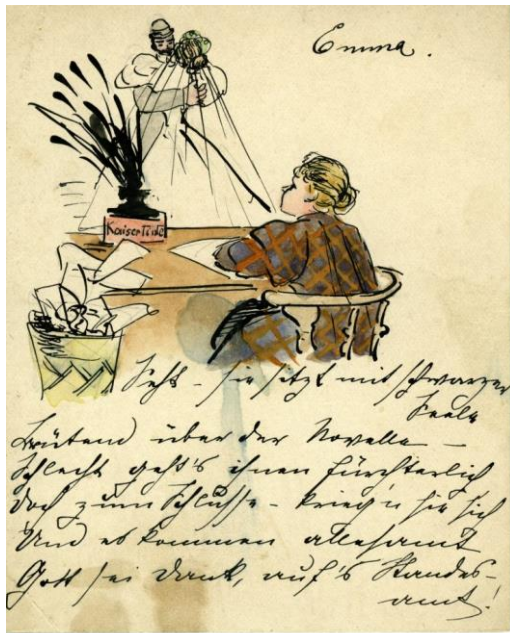 Emma.
Kaiser
Seht - sie sitzt mit schwarzer
Seele
Brütend über der Novelle –
Schlecht geht's ihnen fürchterlich
Doch zum Schlusse - krieg'n sie sich
Und es kommen allesamt
Gott sei Dank, auf's Standes-
amt!